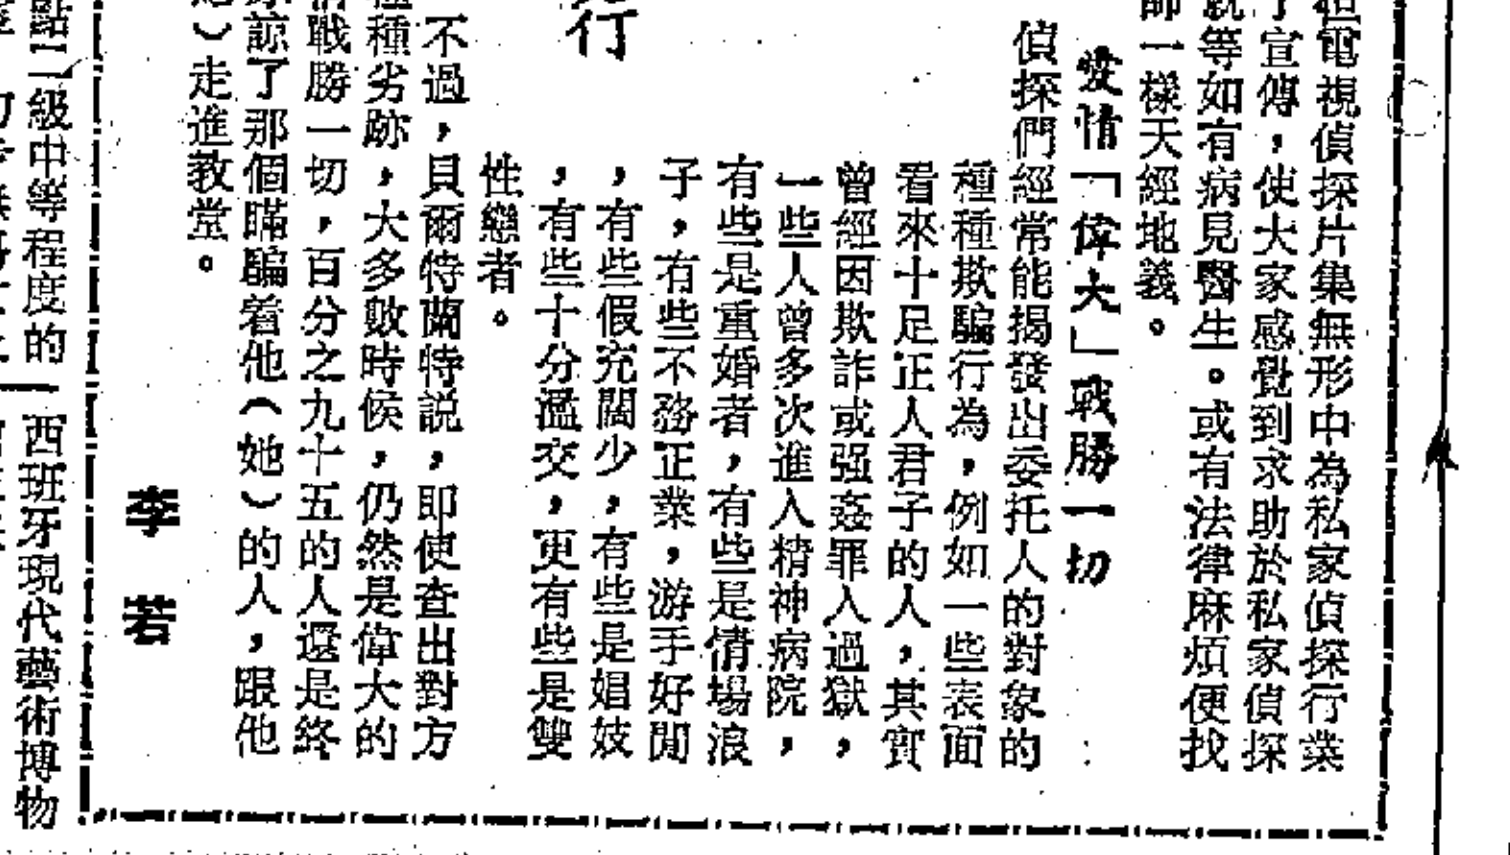 電視偵探片集無形中為私家偵探行業
宣傳，使大家感覺到求助於私家偵探
就等如有病見醫生。或有法律麻煩便找
師一樣天經地義。
愛情「偉大」戰勝一切
偵探們經常能揭發出委托人的對象的
種種欺騙行為，例如一些表面
看來十足正人君子的人，其實
曾經因欺詐或强姦罪入過獄，
一些人曾多次進入精神病院，
有些是重婚者，有些是情場浪
子，有些不務正業，游手好閒
，有些假充闊少，有些是娼妓
，有些十分濫交，更有些是雙
性戀者。
行
不過，貝爾特蘭特説，即使查出對方
種劣跡，大多數時候，仍然是偉大的
戰勝一切，百分之九十五的人還是終
諒了那個瞞騙着他（她）的人，跟他
）走進教堂。
李若
點二級中等程度的
西班牙現代藝術博物